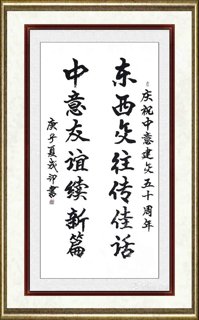 庆祝中意建交五十周年
东西交往传佳话
中意友谊续新篇
庚子夏印书